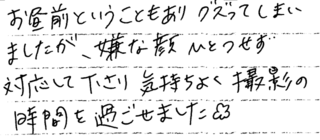 お昼前ということもあり グズってしまい
ましたが、嫌な顔ひとつせず
対応して下さり 気持ちよく撮影の
時間を過ごせました